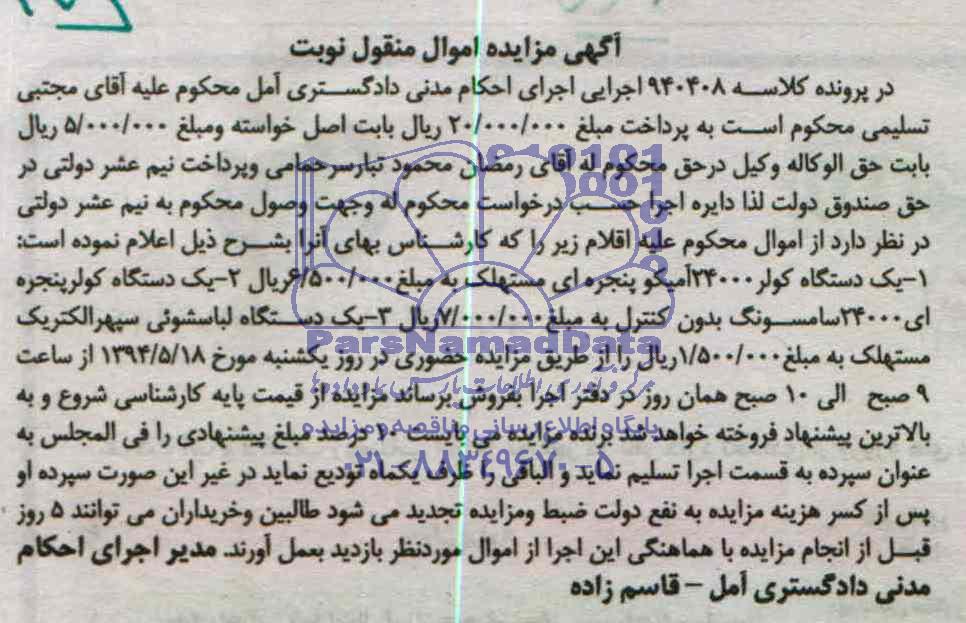 آگهی مزایده اموال منقول نوبت
در پرونده کلاسه ۹۴۰۴۰۸ اجرایی اجرای احکام مدنی دادگستری آمل محکوم علیه آقای مجتبی
تسلیمی محکوم است به پرداخت مبلغ ۲۰/۰۰۰/۰۰۰ ریال بابت اصل خواسته ومبلغ ۵/۰۰۰/۰۰۰ ریال
بابت حق الوکاله وکیل درحق محکوم له آقای رمضان محمود تبارسرحمامی وپرداخت نیم عشر دولتی در
حق صندوق دولت لذا دایره اجرا حسب درخواست محکوم له وجهت وصول محکوم به نیم عشر دولتی
در نظر دارد از اموال محکوم علیه اقلام زیر را که کارشناس بهای آنرا بشرح ذیل اعلام نموده است:
۱-یک دستگاه کولر ۲۴۰۰۰آمیکو پنجره ای مستهلک به مبلغ ۶/۵۰۰/۰۰۰ریال ۲-یک دستگاه کولرپنجره
ای۲۴۰۰۰سامسونگ بدون کنترل به مبلغ۷/۰۰۰/۰۰۰ریال ۳-یک دستگاه لباسشوئی سپهرالکتریک
مستهلک به مبلغ۱/۵۰۰/۰۰۰ریال را از طریق مزایده حضوری در روز یکشنبه مورخ ۱۳۹۴/۵/۱۸ از ساعت
۹ صبح الی ۱۰ صبح همان روز در دفتر اجرا بفروش برساند مزایده از قیمت پایه کارشناسی شروع و به
بالاترین پیشنهاد فروخته خواهد شد برنده مزایده می بایست ۱۰ درصد مبلغ پیشنهادی را فی المجلس به
عنوان سپرده به قسمت اجرا تسلیم نماید و الباقی را ظرف یکماه تودیع نماید در غیر این صورت سپرده او
پس از کسر هزینه مزایده به نفع دولت ضبط ومزایده تجدید می شود طالبین وخریداران می توانند ۵ روز
قبل از انجام مزایده با هماهنگی این اجرا از اموال موردنظر بازدید بعمل آورند. مدیر اجرای احکام
مدنی دادگستری آمل – قاسم زاده
ParsNamadData
پایگاه اطلاع رسانی مناقصه و مزایده
۰۲۱-۸۸۳۴۹۶۷۰-۵